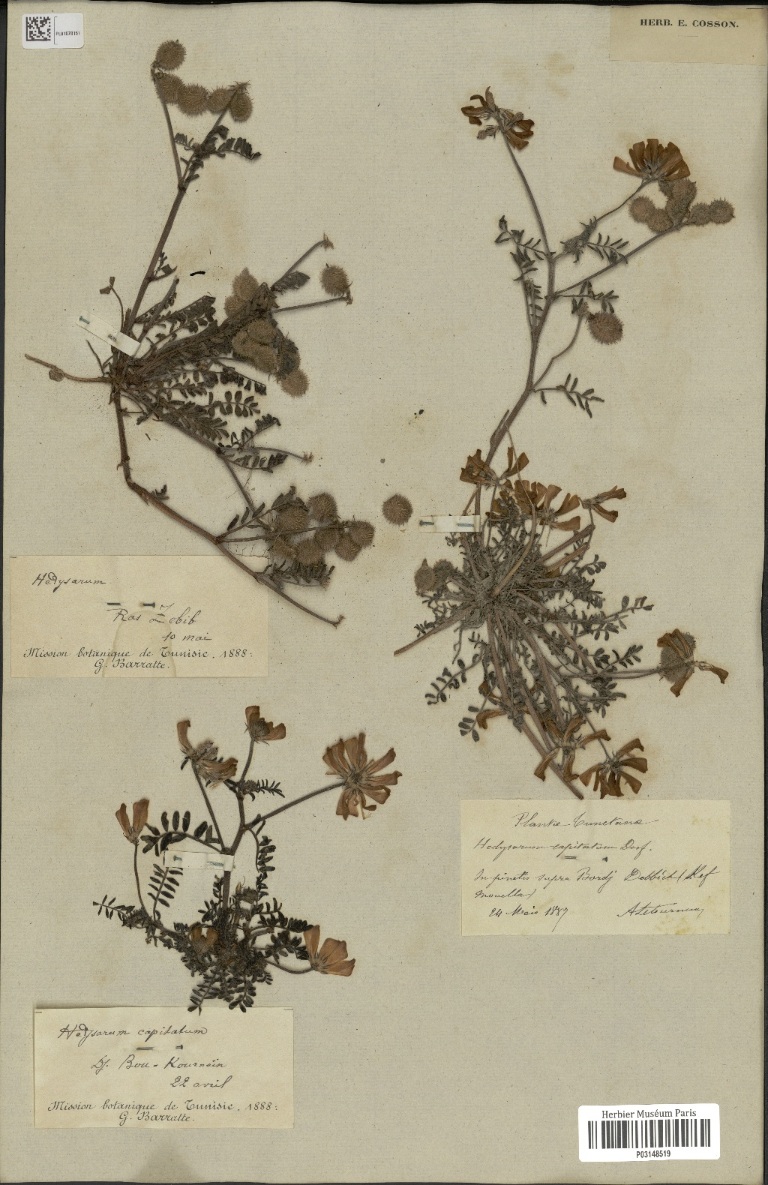 HERB. E. COSSON.
Hedysarum
Ras Zebib
10 mai
Mission botanique de Tunisie, 1888:
G. Barratte.
Plantæ Tunetanæ
Hedysarum capitatum Desf.
In pinetis supra Bordj Debbich (Kef
24 Mai 1887 A. Letourneux
Hedysarum capitatum
Dj. Bou-Kournein
22 avril
Mission botanique de Tunisie, 1888:
G. Barratte.
Herbier Muséum Paris
P03148519